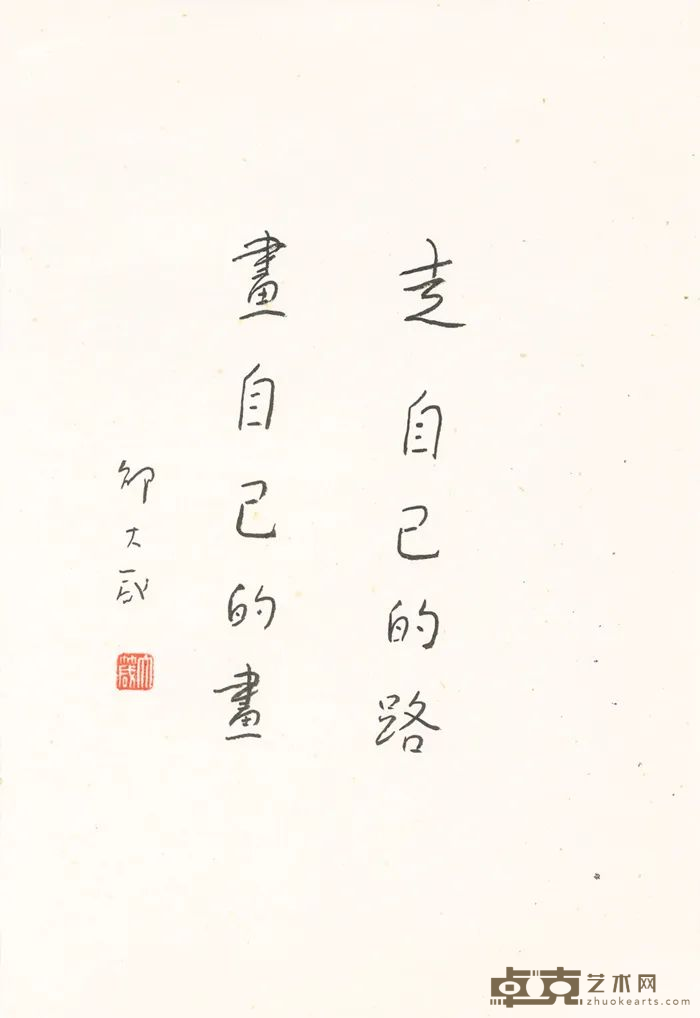 走自己的路
畫自己的畫
邵大箴
大箴
卓克艺术网
zhuokearts.com